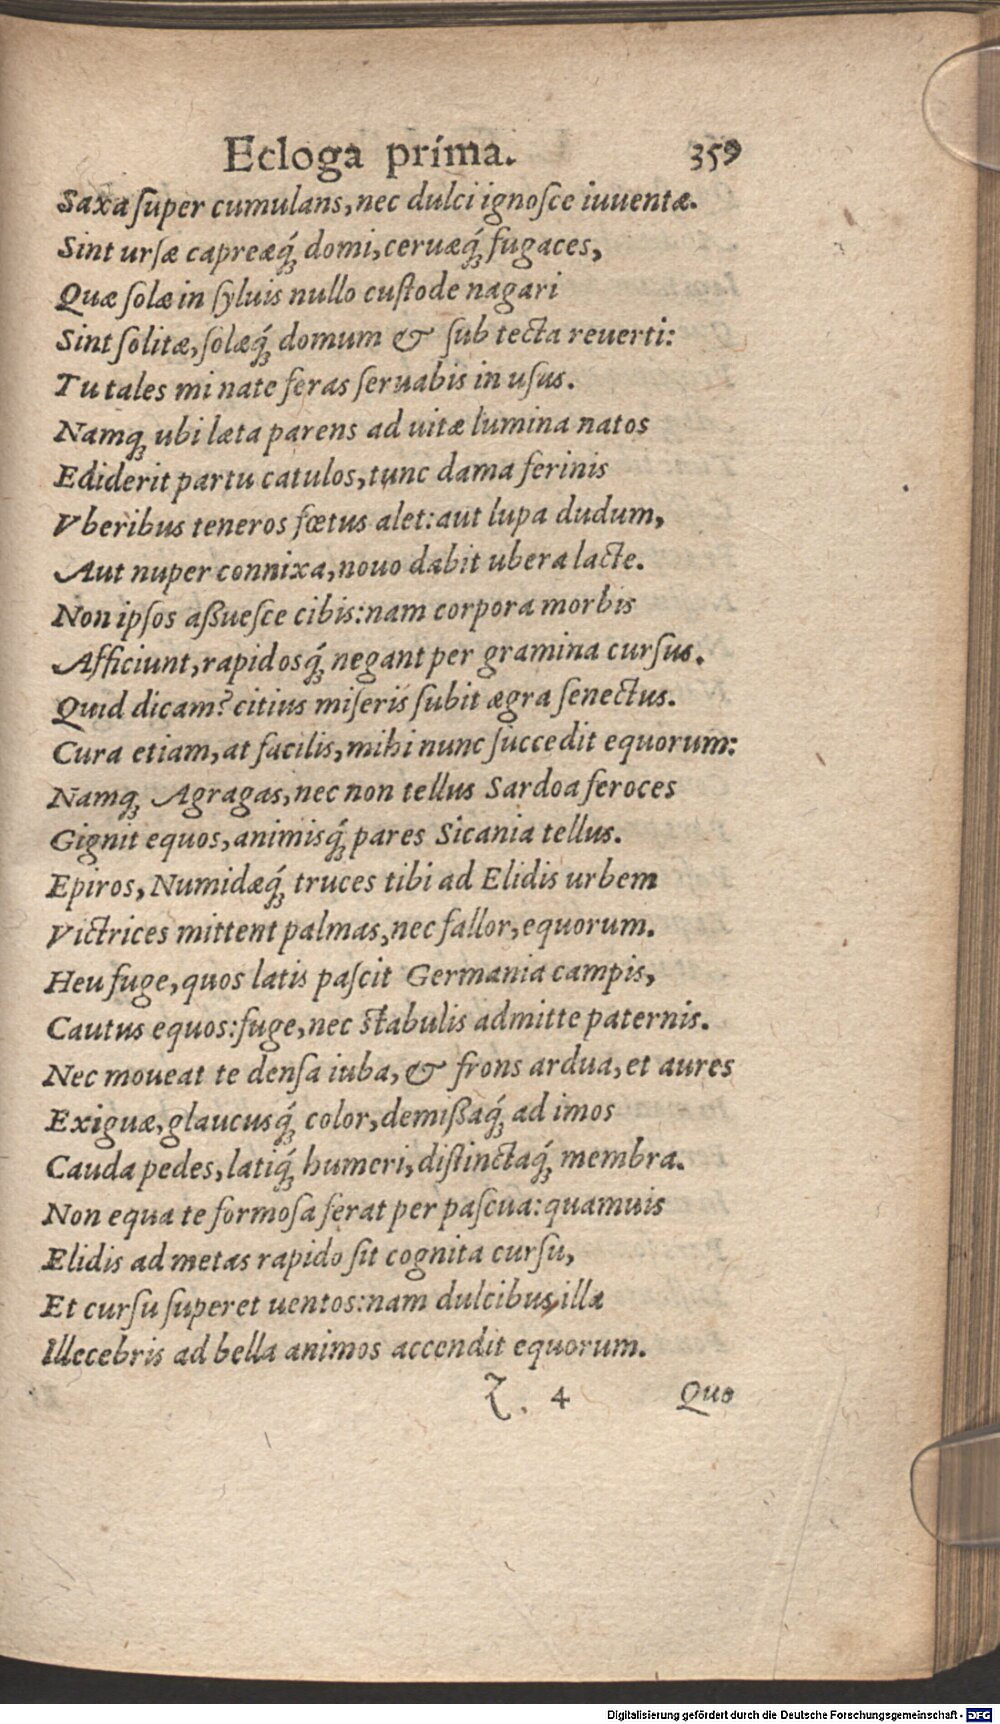 Ecloga prima. 359
Saxa ſuper cumulans, nec dulci ignoſce iuuentæ.
Sint urſæ capreæq́ꝫ domi, ceruæq́ꝫ fugaces,
Quæ ſolæ in ſyluis nullo cuſtode nagari
Sint ſolitæ, ſolæq́ꝫ domum & ſub tecta reuerti:
Tu tales mi nate feras ſeruabis in uſus.
Namqꝫ ubi læta parens ad uitæ lumina natos
Ediderit partu catulos, tunc dama ferinis
Vberibus teneros fœtus alet: aut lupa dudum,
Aut nuper connixa, nouo dabit ubera lacte.
Non ipſos aßueſce cibis: nam corpora morbis
Afficiunt, rapidosq́ꝫ negant per gramina curſus.
Quid dicam? citius miſeris ſubit ægra ſenectus.
Cura etiam, at facilis, mihi nunc ſuccedit equorum:
Namqꝫ Agragas, nec non tellus Sardoa feroces
Gignit equos, animisq́ꝫ pares Sicania tellus.
Epiros, Numidæq́ꝫ truces tibi ad Elidis urbem
Victrices mittent palmas, nec fallor, equorum.
Heu fuge, quos latis paſcit Germania campis,
Cautus equos: fuge, nec ſtabulis admitte paternis.
Nec moueat te denſa iuba, & frons ardua, et aures
Exiguæ, glaucusq́ꝫ color, demißaq́ꝫ ad imos
Cauda pedes, latiq́ꝫ humeri, diſtinctaq́ꝫ membra.
Non equa te formoſa ferat per paſcua: quamuis
Elidis ad metas rapido ſit cognita curſu,
Et curſu ſuperet uentos: nam dulcibus illa
Illecebris ad bella animos accendit equorum.
Z. 4 Quo
Digitalisierung gefördert durch die Deutsche Forschungsgemeinschaft - DFG